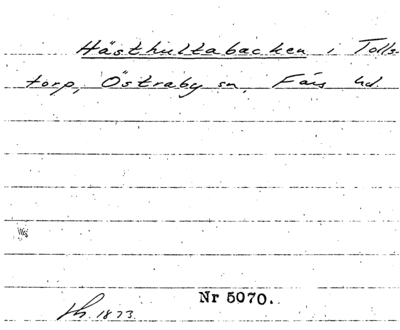 Hästhultabacken i Tolls-
torp, Östraby sn, Färs hd.
Nr 5070.
1873